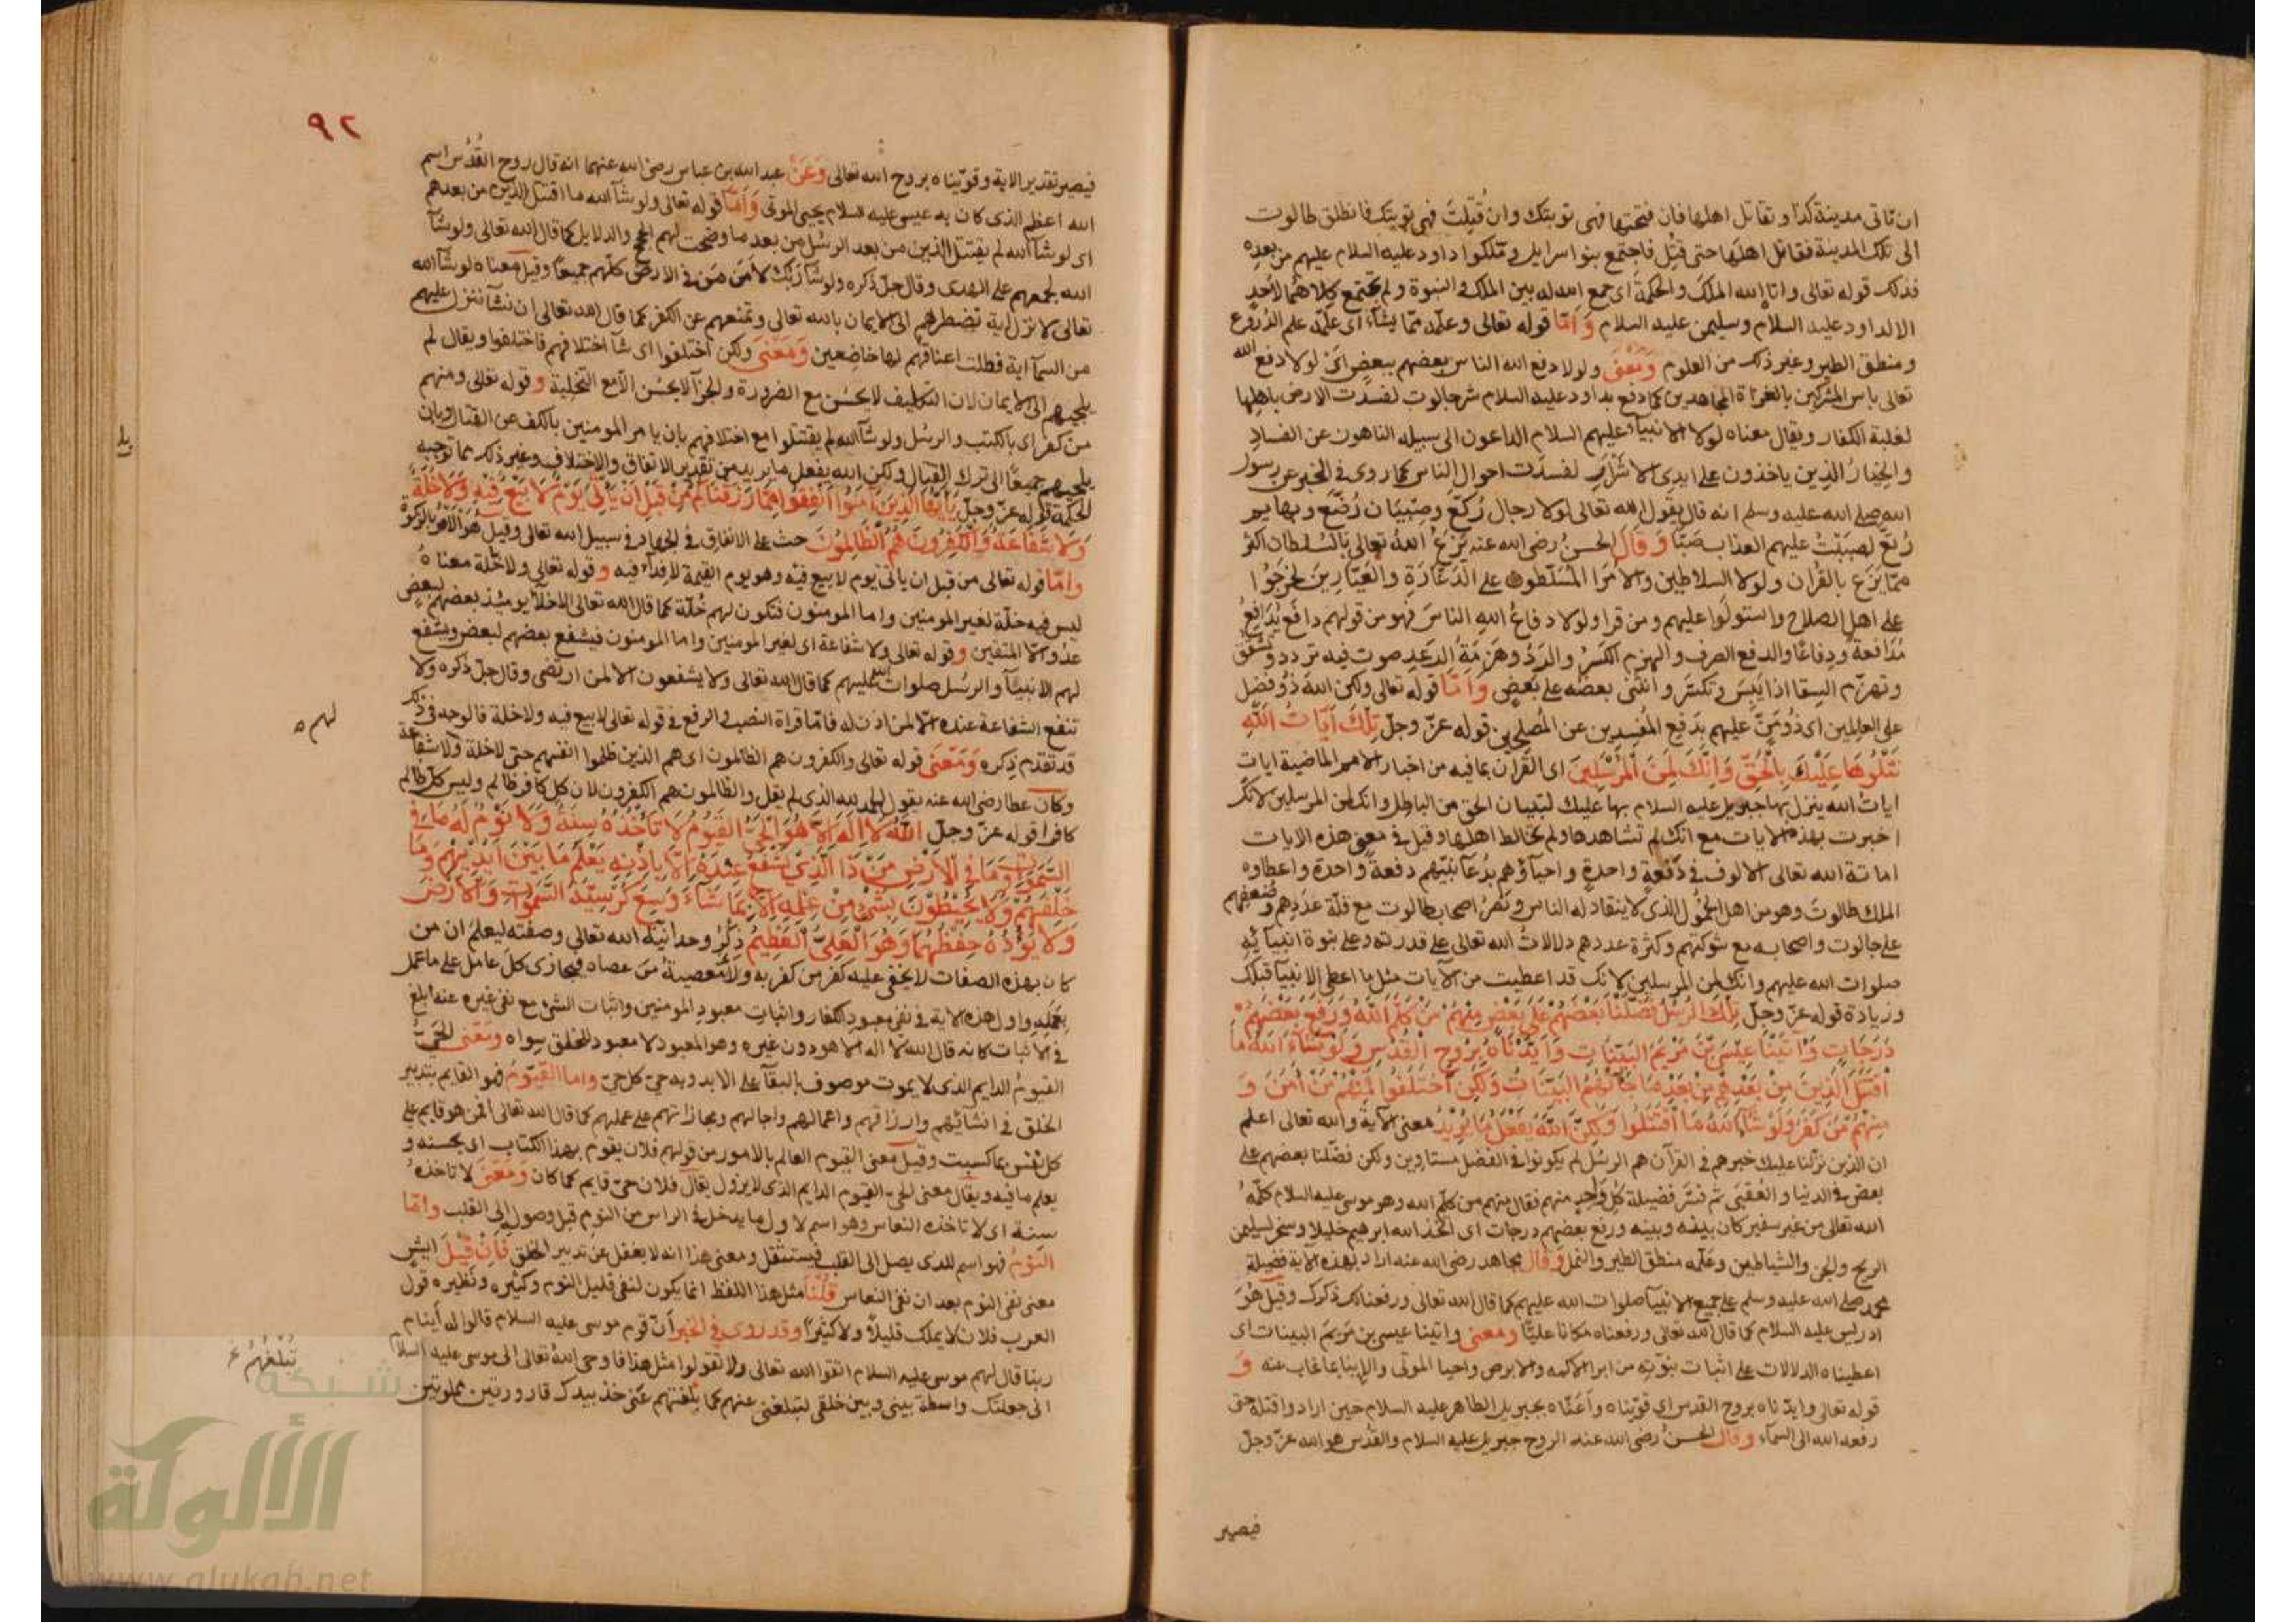 ان تاتى مدينة كذا و تقاتل اهلها فان فتحتها فهى توبتك وان قُتِلتَ فهى توبتك فانطلق طالوت
الى تلك المدينة فقاتل اهلها حتى قُتِل فاجتمع بنوا اسرايل وملكوا داود عليه السلام عليهم من بعده
فذلك قوله تعالى واتاه الله الملك والحكمة اى جمع الله له بين الملك والنبوة ولم يجتمع كلاهما لاحدٍ
الا لداود عليه السلام وسليمن عليه السلام وَاَمّا قوله تعالى وعلّمه ممّا يشآء اى علّمه علم الدُرُوع
ومنطق الطير وغير ذلك من العلوم وَمَعْنَى ولولا دفع الله الناس بعضهم ببعضٍ اىْ لولا دفع الله
تعالى باس المشركين بالغزاة المجاهدين كما دفع بداود عليه السلام شر جالوت لفسدت الارض باهلها
لغلبة الكفار ويقال معناه لولا الانبيآء عليهم السلام الداعون الى سبيله الناهون عن الفسادِ
والخِيارُ الذين ياخذون على ايدى الاشرارِ لفسدَت احوال الناس كما روى فى الخبر عن رسول
الله صلى الله عليه وسلم انه قال يقول الله تعالى لولا رجال رُكّع وصِبْيان رُضّع وبهايم
رُتّع لصبَبْتُ عليهم العذاب صَبّا وَقَالَ الحسنُ رضى الله عنه يَزَعُ اللهُ تعالى بالسُلطان اكثر
ممّا يَزَع بالقران ولولا السلاطين والامرا المُسَلّطون على الدَعّارةِ والعَيّارين لخرجُوا
على اهل الصلاح واستولَوا عليهم ومن قرا ولولا دفاعُ اللهِ الناسَ فهو من قولهم دافع يُدافِعُ
مُدَافعةً ودِفاعًا والدفع الصرف والهزم الكسْرُ والردّ وهَزمَةُ الرعْدِ صوت فيه تردد وتشقق
وتهزّم السِقا اذا يَبِسَ وتكسّر وانثنى بعضُه على بعضٍ وَاَمّا قوله تعالى ولكن اللهَ ذُو فضل
على العالمين اى ذُو مَنٍّ عليهم بدَفع المُفسِدين عن المُصلِحين قوله عزّ وجلّ تِلْكَ آيَاتُ اللهِ
نَتْلُوهَا عَلَيْكَ بِالْحَقِّ وَاِنَّكَ لَمِنَ الْمُرْسَلِينَ اى القران بما فيه من اخبار الامم الماضية ايات
اياتُ الله ينزل بها جبريل عليه السلام بها عليك لتبيان الحق من الباطل وانك لمن المرسلين لانك
اخبرت بهذه الايات مع انك لم تشاهدها ولم تخالط اهلها وقيل فى معنى هذه الايات
اماتة الله تعالى الالوف فى دَفعةٍ واحدةٍ واحياؤهم بدُعآ نبيّهم دفعةً واحدةً واعطاوه
الملك طالوت وهو من اهل الخمُول الذى لا ينقاد له الناس ونَصْرُ اصحاب طالوت مع قلّة عددِهم وضعفهم
على جالوت واصحابه مع شوكتهم وكثرة عددهم دلالاتُ الله تعالى على قدرته وعلى نبوة انبيآيه
صلوات الله عليهم وانك لمن المرسلين لانك قد اعطيت من الآيات مثل ما اعطى الانبيآ قبلك
وزيادة قوله عزّ وجلّ تِلْكَ الرُّسُلُ فَضَّلْنَا بَعْضَهُمْ عَلَى بَعْضٍ مِنْهُمْ مَنْ كَلَّمَ اللهُ وَرَفَعَ بَعْضَهُمْ
دَرَجَاتٍ وَآتَيْنَا عِيْسَى بْنَ مَرْيَمَ الْبَيِّنَاتِ وَاَيَّدْنَاهُ بِرُوحِ الْقُدُسِ وَلَوْ شَآءَ اللهُ مَا
اقْتَتَلَ الَّذِينَ مِنْ بَعْدِهِمْ مِنْ بَعْدِ مَا جَآءَتْهُمُ الْبَيِّنَاتُ وَلَكِنِ اخْتَلَفُوا فَمِنْهُمْ مَنْ اٰمَنَ وَ
مِنْهُمْ مَنْ كَفَرَ وَلَوْ شَآءَ اللهُ مَا اقْتَتَلُوا وَلَكِنَّ اللهَ يَفْعَلُ مَا يُرِيْدُ معنى الآية والله تعالى اعلم
ان الذين نزّلنا عليك خبرهم فى القرآن هم الرسُل لم يكونوا فى الفضل مستاوين ولكن فضّلنا بعضهم على
بعض فى الدنيا والعُقبَى ثم فسَّر فضيلة كل واحدٍ منهم فقال منهم من كلّم الله وهو موسى عليه السلام كلّمهُ
الله تعالى من غير سفير كان بينه وبينه ورفع بعضهم درجات اى اتخذ الله ابرهيم خليلا وسخر لسليمن
الريح والجن والشياطين وعلّمه منطق الطير والنمل وَقال مجاهد رضى الله عنه اراد بهذه الاية فضيلة
محمد صلى الله عليه وسلم على جميع الانبيآ صلوات الله عليهم كما قال الله تعالى ورفعنا لك ذكرك وقيل هُوَ
ادريس عليه السلام كما قال الله تعالى ورفعناه مكانا عليّا ومعنى واتينا عيسى بن مريم البينات اى
اعطيناه الدلالات على اثبات نبوّته من ابرا الاكمه والابرص واحيا الموتى والاِنبا عما غاب عنه وَ
قوله تعالى وايدناه بروح القدس اى قوّيناه واَعَنّاه بجبريل الطاهر عليه السلام حين ارادوا قتله حتى
رفعه الله الى السمآء وقال الحسنُ رضى الله عنه الروح جبريل عليه السلام والقدُس هو الله عزّ وجلّ
فيصير
٩٢
فيصير تقدير الاية وقوّيناه بروح الله تعالى وَعَنْ عبد الله بن عباس رضى الله عنهما انه قال روح القُدُس اسم
الله اعظم الذى كان به عيسى عليه السلام يحيى الموتى وَاَمّا قوله تعالى ولو شآ الله ما اقتتل الذين من بعدهم
اى لو شآ الله لم يقتتل الذين من بعد الرسُل من بعد ما وضحت لهم الحجج والدلايل كما قال الله تعالى ولو شآ
الله لجمعهم على الهدى وقال جلّ ذكره ولو شآ ربّك لآمن مَن فى الارض كلّهم جميعًا وقيل معناه لو شآ الله
تعالى لانزل اية تضطرهم الى الايمان بالله تعالى وتمنعهم عن الكفر كما قال الله تعالى ان نشآ ننزل عليهم
من السمآ اية فظلت اعناقهم لها خاضِعين وَمَعْنَى ولكن اختلفوا اى شآ اختلافهم فاختلفوا ويقال لم
يلجيهم الى الايمان لان التكليف لا يحسُن مع الضرورة والجزآ لا يحسُن الّا مع التخلية و قوله تعالى ومنهم
من كفر اى بالكتب والرسُل ولو شآ الله لم يقتتلوا مع اختلافهم بان يامر المومنين بالكف عن القتال وبان
يلجيهم جميعًا الى ترك القتال ولكن الله يفعل ما يريد من تقدير الاتفاق والاختلاف وغير ذلك مما توجبه
الحكمة قوله عزّ وجلّ يَآاَيُّهَا الَّذِينَ اٰمَنُوا اَنْفِقُوا مِمَّا رَزَقْنَاكُمْ مِنْ قَبْلِ اَنْ يَأْتِىَ يَوْمٌ لَا بَيْعٌ فِيْهِ وَلَا خُلَّةٌ
وَلَا شَفَاعَةٌ وَالْكَٰفِرُونَ هُمُ الظَّالِمُونَ حث على الانفاق فى الجهاد فى سبيل الله تعالى وقيل هُوَ الامرُ بالزكوة
وامّا قوله تعالى من قبل ان ياتى يوم لا بيع فيه وهو يوم القيمة لا فِدآء فيه و قوله تعالى ولا خلّة معناهُ
ليس فيه خلّة لغير المومنين واما المومنون فتكون لهم خُلّة كما قال الله تعالى الاخلآ يومئذ بعضهم لبعضٍ
عدُو الّا المتقين و قوله تعالى ولا شفاعة اى لغير المومنين واما المومنون فيشفع بعضهم لبعض ويشفع
لهم الانبيآ والرسُل صلوات الله عليهم كما قال الله تعالى ولا يشفعون الا لمن ارتضى وقال جلّ ذكره ولا
تنفع الشفاعة عنده الّا لمن اذن له فامّا قراة النصب والرفع فى قوله تعالى لا بيع فيه ولا خلة فالوجه فى ذلك
لهم ه
قد تقدّم ذِكره وَمَعْنَى قوله تعالى والكفرون هم الظالمون اى هم الذين ظلموا انفسهم حتى لا خلة ولا شفاعة
وكان عطا رضى الله عنه يقول الحمد لله الذى لم يقل والظالمون هم الكفرون لان كل كافر ظالم وليس كلّ ظالم
كافرا قوله عزّ وجلّ اَللهُ لَا اِلٰهَ اِلَّا هُوَ الْحَىُّ الْقَيُّومُ لَا تَأْخُذُهُ سِنَةٌ وَلَا نَوْمٌ لَهُ مَا فِى
السَّمٰوَاتِ وَمَا فِى الْاَرْضِ مَنْ ذَا الَّذِىْ يَشْفَعُ عِنْدَهُ اِلَّا بِاِذْنِهِ يَعْلَمُ مَا بَيْنَ اَيْدِيْهِمْ وَمَا
خَلْفَهُمْ وَلَا يُحِيْطُوْنَ بِشَىْءٍ مِنْ عِلْمِهِ اِلَّا بِمَا شَآءَ وَسِعَ كُرْسِيُّهُ السَّمٰوَاتِ وَالْاَرْضَ
وَلَا يَؤُدُهُ حِفْظُهُمَا وَهُوَ الْعَلِىُّ الْعَظِيْمُ ذِكْرُ وحدانيّة الله تعالى وصفته ليعلم ان من
كان بهذه الصفات لا يخفى عليه كفر من كفر به ولا معصيةُ من عصاه فيجازى كلّ عامل على ما عمل
بعَمَلِه واول هذه الاية فى نفى معبود الكفار واثباتِ معبود المومنين واثبات الشئ مع نفى غيره عنه ابلغ
فى الاثبات كانه قال الله لا اله الا هو دون غيره وهو المعبود لا معبود للخلق سواه ومَعْنى الحَىُّ
القيومُ الدايم الذى لا يموت موصوف بالبقآ على الابد وبه حىّ كل حىّ واما القيّومُ فهو القايم بتدبير
الخلق فى انشائهم وارزاقهم واعمالهم واجالهم ومجازاتهم على عملهم كما قال الله تعالى افمن هو قايم على
كل نفس بما كسبت وقيل معنى القيوم العالم بالامور من قولهم فلان يقوم بهذا الكتاب اى يحسنه و
يعلم ما فيه ويقال معنى الحى القيوم الدايم الذى لا يزول يقال فلان حىّ قايم كما كان وَمَعْنَى لا تاخذهُ
سنة اى لا تاخذه النعاس وهو اسم لاول ما يدخل فى الراس من النوم قبل وصوله الى القلب وامّا
النَوْمُ فهو اسم للذى يصل الى القلب فيستثقل ومعنى هذا انه لا يغفل عن تدبير الخلق فَاِنْ قِيْلَ ايش
معنى نفى النوم بعد ان نفى النعاس قُلْنَا مثل هذا اللفظ انما يكون لنفى قليل النوم وكثيره ونظيره قول
العرب فلان لا يملك قليلًا ولا كثيرًا وقد روى فى الخبر اَنّ قوم موسى عليه السلام قالوا له أينام
ربنا قال لهم موسى عليه السلام اتقوا الله تعالى ولا تقولوا مثل هذا فاوحى اللهُ تعالى الى موسى عليه السلام
انى جعلتك واسطة بينى وبين خلقى لتبلغنى عنهم كما بلغتهم عنى خذ بيدك قارورتين مملوتين
تُبْلِغُهُمْ
شبكة
الألوكة
www.alukah.net